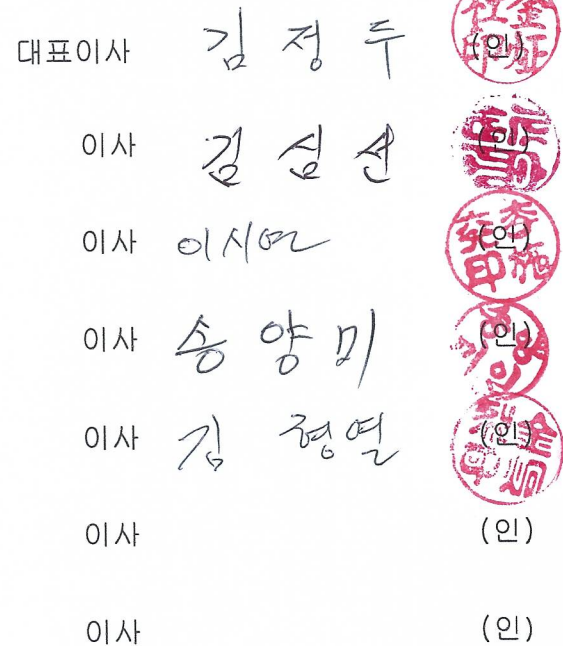 대표이사 김 정 두 (인)
이사 김 심 선 (인)
이사 이시연 (인)
이사 송 양 미 (인)
이사 김 정열 (인)
이사 (인)
이사 (인)